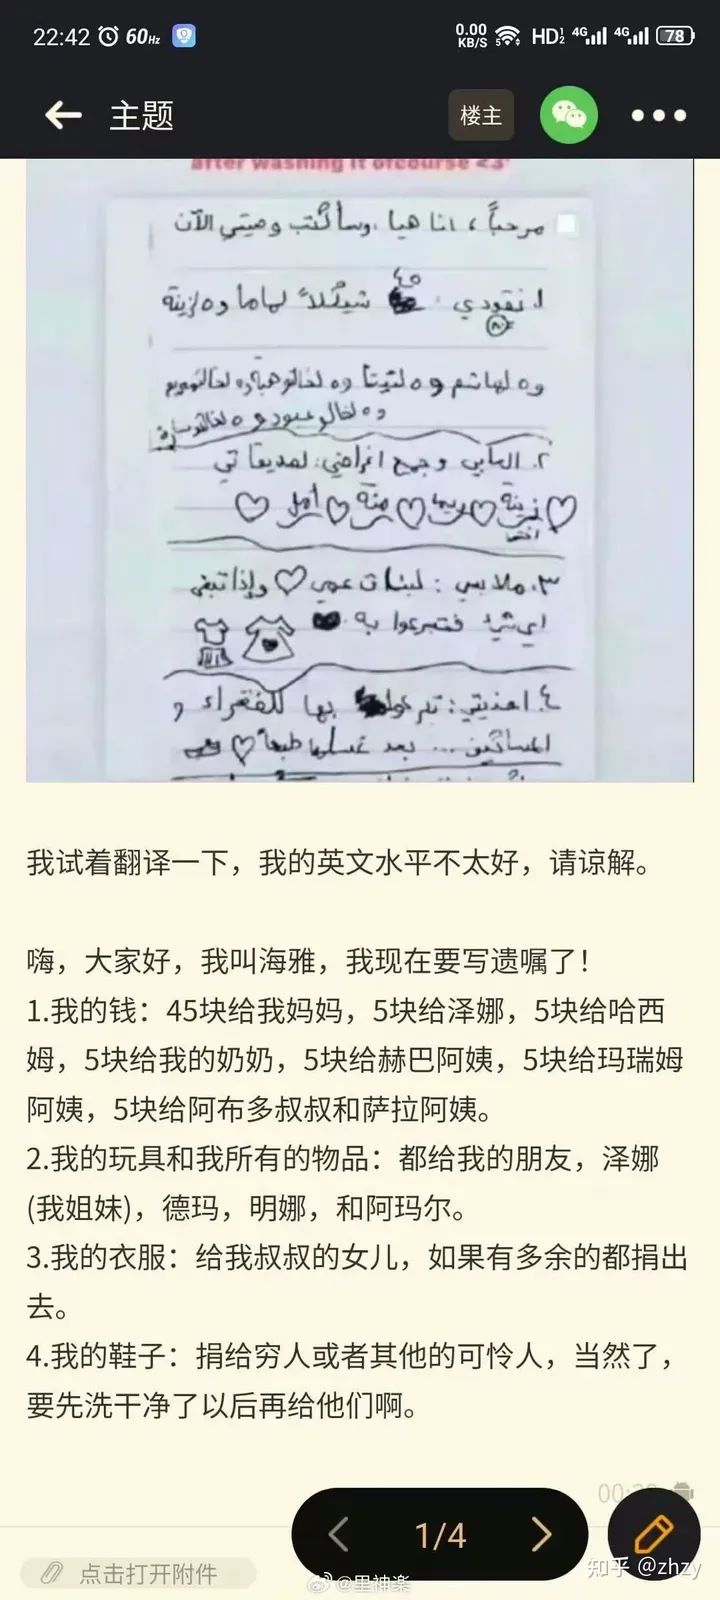 22:42 60Hz 0.00 KB/S 5 HD 1 2 4G 4G 78
主题 楼主
after washing it ofcourse <3"
مرحباً، انا هيا، وسأكتب وصيتي الآن
١. نقودي : ٤٥ شيكلاً لماما و٥ لزينة
و٥ لهاشم و٥ لتيتا و٥ لخالتو هبة و٥ لخالتو مريم
و٥ لخالو عبود و٥ لخالتو سارة
٢. العابي وجميع اغراضي: لصديقاتي
زينة ريما منة أمل
اختي
٣. ملابسي : لبنات عمي وإذا تبقى
اي شيء فتبرعوا به
٤. احذيتي: تبرعوا بها للفقراء و
المساكين... بعد غسلها طبعاً
我试着翻译一下，我的英文水平不太好，请谅解。
嗨，大家好，我叫海雅，我现在要写遗嘱了！
1.我的钱：45块给我妈妈，5块给泽娜，5块给哈西
姆，5块给我的奶奶，5块给赫巴阿姨，5块给玛瑞姆
阿姨，5块给阿布多叔叔和萨拉阿姨。
2.我的玩具和我所有的物品：都给我的朋友，泽娜
(我姐妹)，德玛，明娜，和阿玛尔。
3.我的衣服：给我叔叔的女儿，如果有多余的都捐出
去。
4.我的鞋子：捐给穷人或者其他的可怜人，当然了，
要先洗干净了以后再给他们啊。
1/4
点击打开附件
@里神楽
知乎 @zhzy